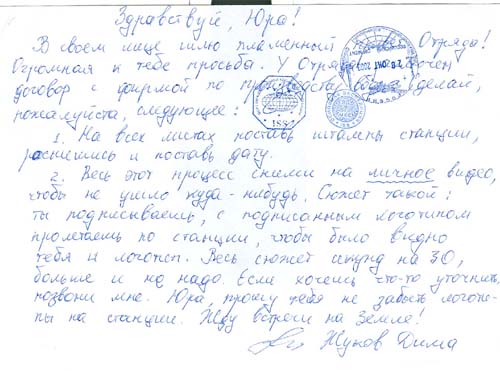 Здравствуй, Юра!
В своем лице шлю пламенный Отряда!
Огромная к тебе просьба. У Отряда
договор с фирмой по производству сделай,
пожалуйста, следующее:
1. На всех листах поставь штампы станции,
распишись и поставь дату.
2. Весь этот процесс сними на личное видео,
чтобы не ушло куда-нибудь. Сюжет такой:
ты подписываешь, с подписанным логотипом
пролетаешь по станции, чтобы было видно
тебя и логотип. Весь сюжет секунд на 30,
больше и не надо. Если хочешь что-то уточнить,
позвони мне. Юра, прошу тебя не забыть логоти-
пы на станции. Жду встречи на Земле!
Жуков Дима